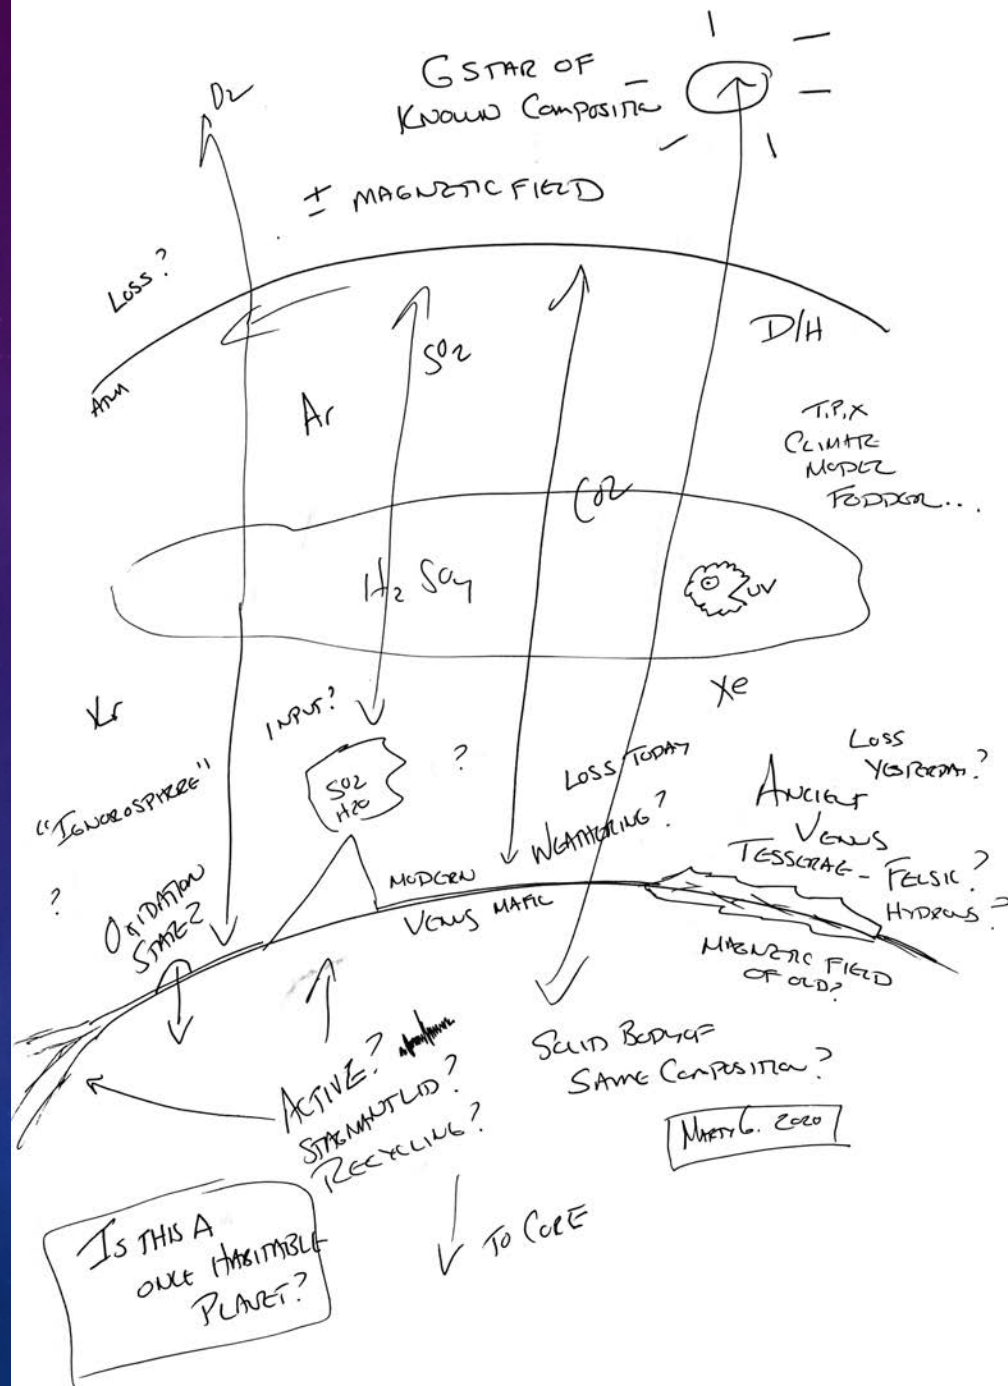 G STAR OF
KNOWN COMPOSITION
O2
± MAGNETIC FIELD
LOSS?
ATM
SO2
D/H
Ar
T,P,X
CLIMATE
MODEL
FODDER...
CO2
H2 SO4
UV
Kr
INPUT?
Xe
"IGNOROSPHERE"
SO2
H2O
?
LOSS TODAY
WEATHERING?
LOSS
YESTERDAY?
ANCIENT
VENUS
TESSERAE - FELSIC?
HYDROUS?
?
OXIDATION
STATE?
MODERN
VENUS MAFIC
MAGNETIC FIELD
OF OLD?
ACTIVE?
STAGNANT LID?
RECYCLING?
SOLID BODY OF
SAME COMPOSITION?
MARTY G. 2020
TO CORE
IS THIS A
ONCE HABITABLE
PLANET?